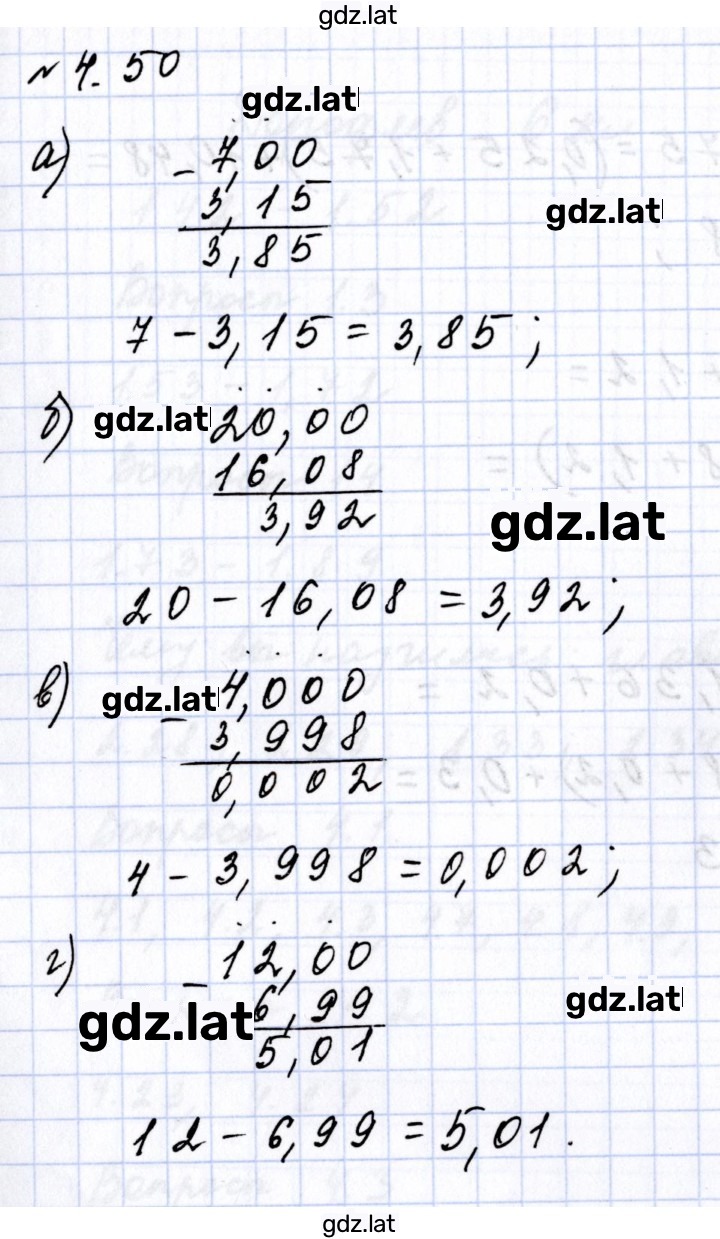 gdz.lat
№ 4.50
gdz.lat
а) - 7,00
3,15
gdz.lat
3,85
7 - 3,15 = 3,85;
б) gdz.lat 20,00
16,08
3,92
gdz.lat
20 - 16,08 = 3,92;
в) gdz.lat - 4,000
3,998
0,002
4 - 3,998 = 0,002;
г) - 12,00
gdz.lat 6,99
gdz.lat
5,01
12 - 6,99 = 5,01.
gdz.lat